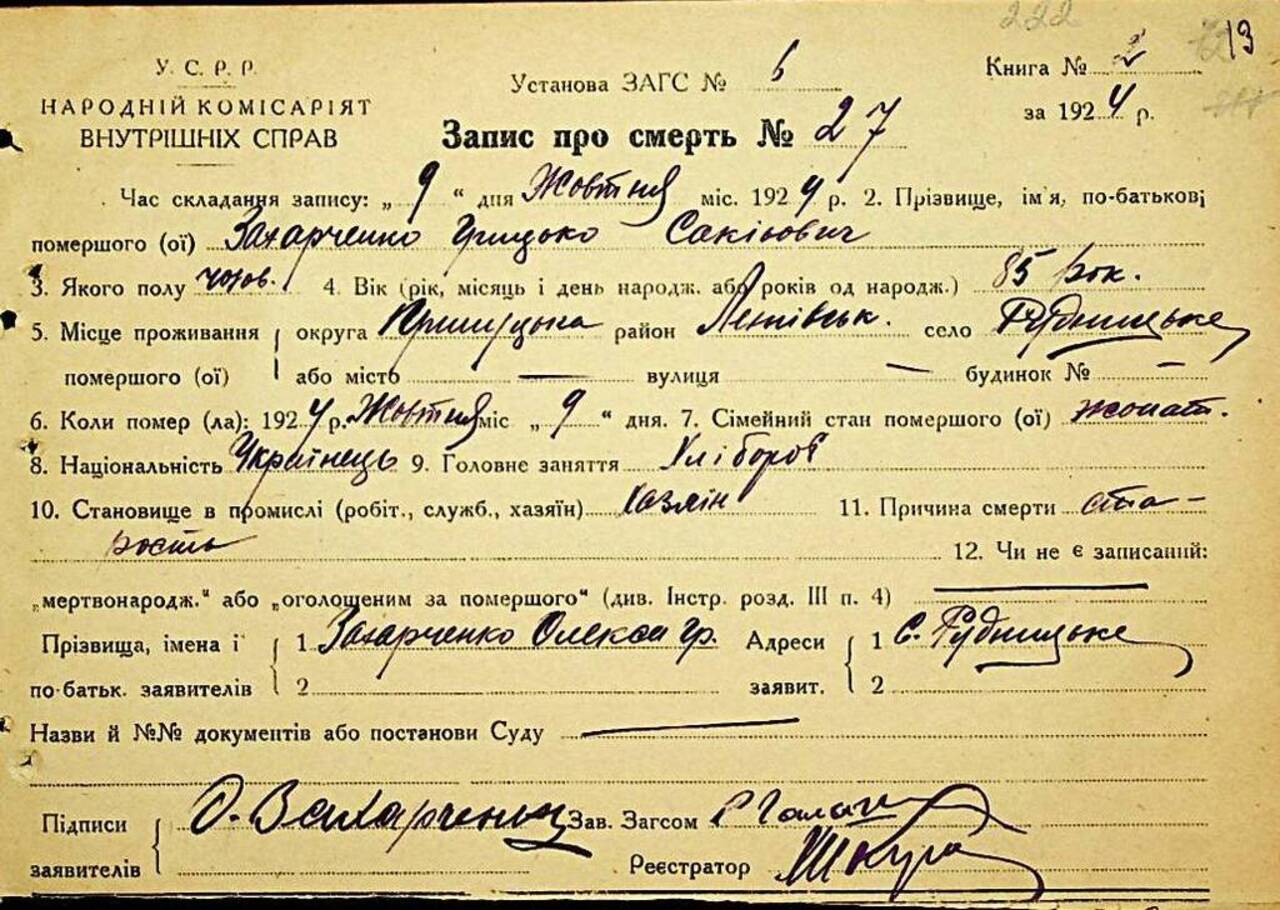 222 13
У. С. Р. Р.
НАРОДНІЙ КОМІСАРІЯТ
ВНУТРІШНІХ СПРАВ
Установа ЗАГС № 6
Книга № 2
за 1924 р.
Запис про смерть № 27
Час складання запису: „ 9 “ дня Жовтня міс. 1924 р. 2. Прізвище, ім'я, по-батькові
помершого (ої) Захарченко Грицько
3. Якого полу чолов. 4. Вік (рік, місяць і день народж. або років од народж.) 85 рок.
5. Місце проживання округа район село Рудницьке
помершого (ої) або місто — вулиця — будинок № —
6. Коли помер (ла): 1924 р. Жовтня міс „ 9 “ дня. 7. Сімейний стан помершого (ої) жонат.
8. Національність Українець 9. Головне заняття Хлібороб
10. Становище в промислі (робіт., служб., хазяїн) Хазяїн 11. Причина смерти ста-
рость 12. Чи не є записаний:
„мертвонародж.“ або „оголошеним за помершого“ (див. Інстр. розд. III п. 4) —
Прізвища, імена і 1 Захарченко Олекса Гр. Адреси 1 С. Рудницьке
по-батьк. заявителів 2 заявит. 2
Назви й №№ документів або постанови Суду —
Підписи О. Захарченко Зав. Загсом
заявителів Реєстратор Шкура